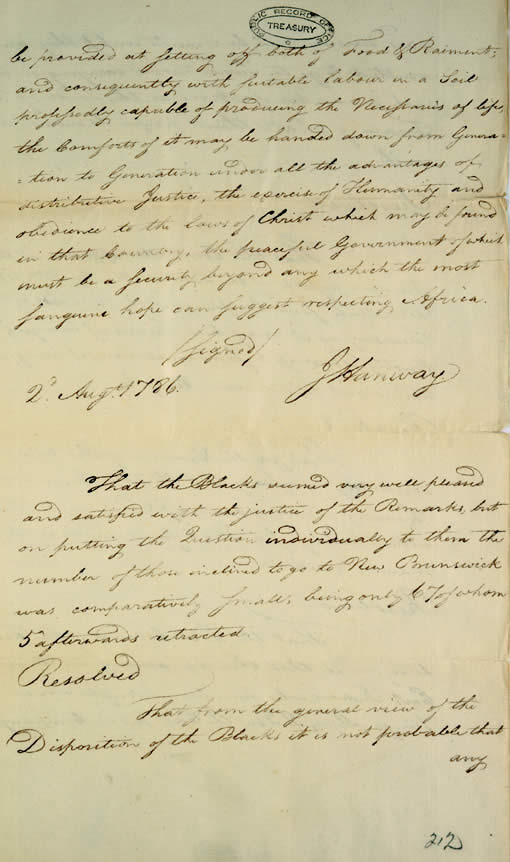 PUBLIC RECORD OFFICE
TREASURY
be provided at setting off both of Food & Raiment;
and consequently with suitable labour in a Soil
professedly capable of producing the Necessaries of life,
the Comforts of it may be handed down from Genera=
=tion to Generation under all the advantages of
distributive Justice, the exercise of Humanity and
obedience to the laws of Christ which may be found
in that Country, the peaceful Government of which
must be a Security beyond any which the most
sanguine hope can suggest respecting Africa.
(signed)
J Hanway
2d Augt. 1786.
That the Blacks seemed very well pleased
and satisfied with the justice of the Remarks, but
on putting the Question individually to them the
number of those inclined to go to New Brunswick
was comparatively small, being only 67 of whom
5 afterwards retracted.
Resolved
That from the general view of the
Disposition of the Blacks it is not probable that
any
212